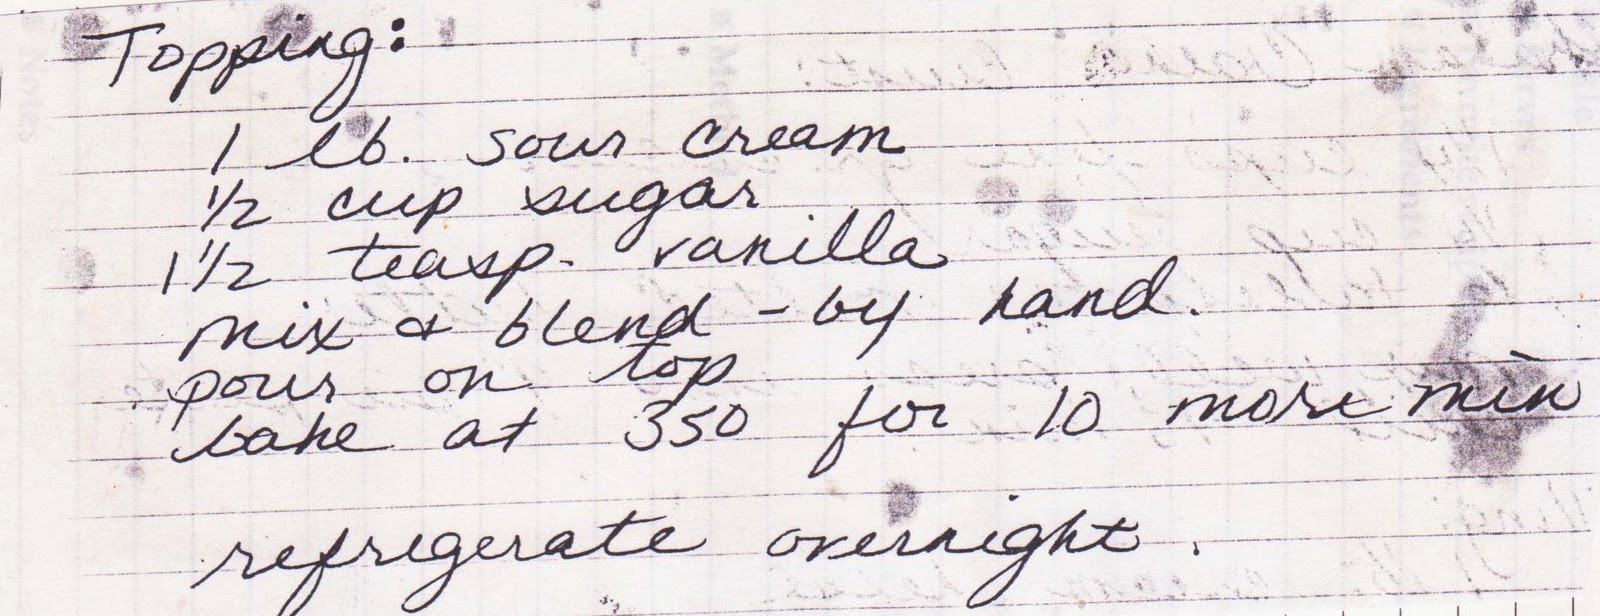 Topping:
1 lb. sour cream
1/2 cup sugar
1 1/2 teasp. vanilla
mix & blend - by hand.
pour on top
bake at 350 for 10 more min
refrigerate overnight.